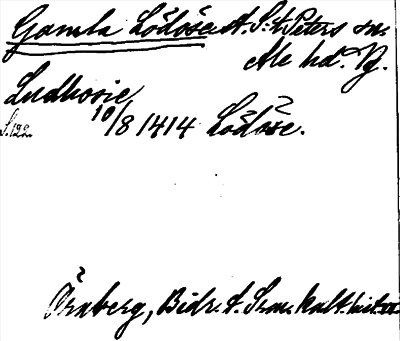 Gamla Lödöse St. Peters sn.
Ale hd. Vg.
Ludhosie
10/8 1414 Lödose.
S. 122
Örnberg, Bidr. t. Sv. kult. hist.